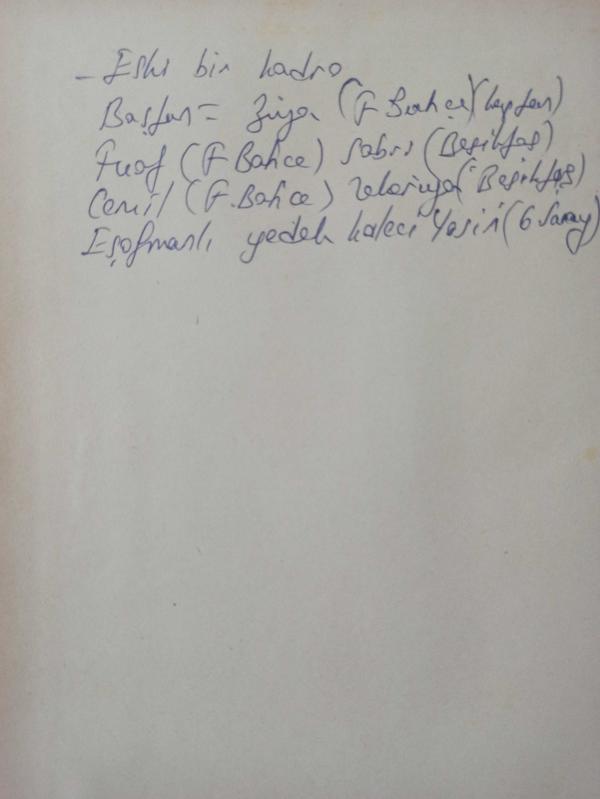 - Eski bir kadro
Baştan = Ziya (F Bahçe) (kaptan)
Fuat (F Bahce) Sabri (Beşiktaş)
Cemil (F.Bahce) Zekeriya (Beşiktaş)
Eşofmanlı yedek kaleci Yasin (G Saray)